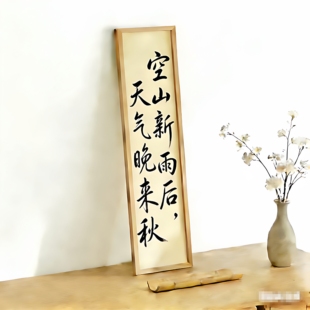 空山新雨后，
天气晚来秋